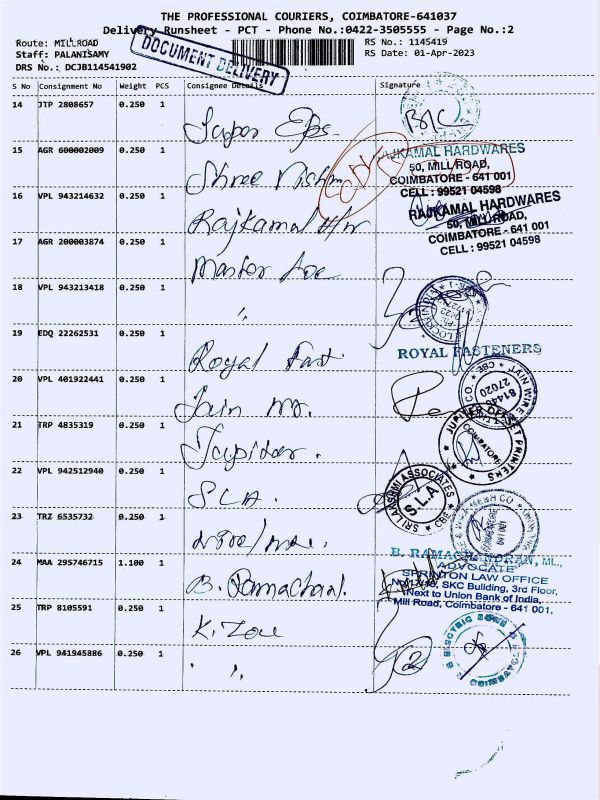 THE PROFESSIONAL COURIERS, COIMBATORE-641037
Delivery Runsheet - PCT - Phone No.:0422-3505555 - Page No.:2
Route: MILLROAD
RS No.: 1145419
Staff: PALANISAMY
RS Date: 01-Apr-2023
DRS No.: DCJB114541902
DOCUMENT DELIVERY
S No Consignment No Weight PCS Consignee Details Signature
14 JTP 2808657 0.250 1
Super
15 AGR 600002009 0.250 1
Shree
RAJKAMAL HARDWARES
50, MILL ROAD,
COIMBATORE - 641 001
CELL : 99521 04598
16 VPL 943214632 0.250 1
Rajkamal H/w
RAJKAMAL HARDWARES
50, MILL ROAD,
COIMBATORE - 641 001
CELL : 99521 04598
17 AGR 200003874 0.250 1
Master
18 VPL 943213418 0.250 1
"
19 EDQ 22262531 0.250 1
Royal Fast
ROYAL FASTENERS
20 VPL 401922441 0.250 1
Jain
JAIN WIRE
CBE
81440
27020
21 TRP 4835319 0.250 1
Jupiter.
JUPITER OFFSET PRINTERS
COIMBATORE
22 VPL 942512940 0.250 1
SLA.
SRI LAKSHMI ASSOCIATES
S.L.A
CBE
23 TRZ 6535732 0.250 1
24 MAA 295746715 1.100 1
B. Ramachan.
B. RAMACHANDRAN, ML.,
ADVOCATE
SPRINTON LAW OFFICE
SKC Building, 3rd Floor,
Next to Union Bank of India,
Mill Road, Coimbatore - 641 001.
25 TRP 8105591 0.250 1
K. Zone
26 VPL 941945886 0.250 1
" "
ELECTRIC ZONE
COIMBATORE